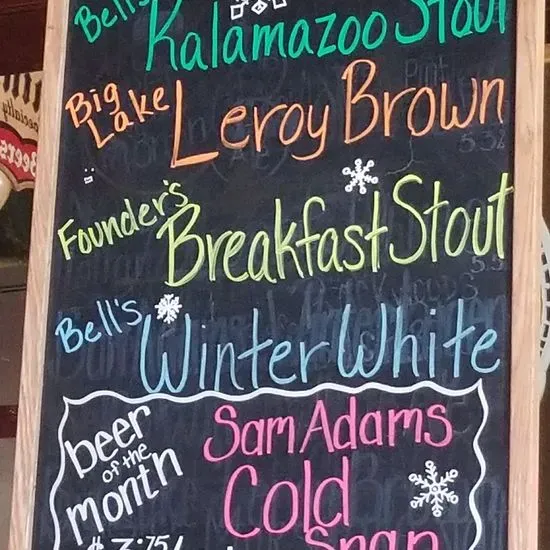 Bell's
Kalamazoo Stout
Big Lake
Leroy Brown
Founder's
Breakfast Stout
Bell's
Winter White
beer of the month
Sam Adams
Cold
Snap
$3.75/
Specialty
Beers